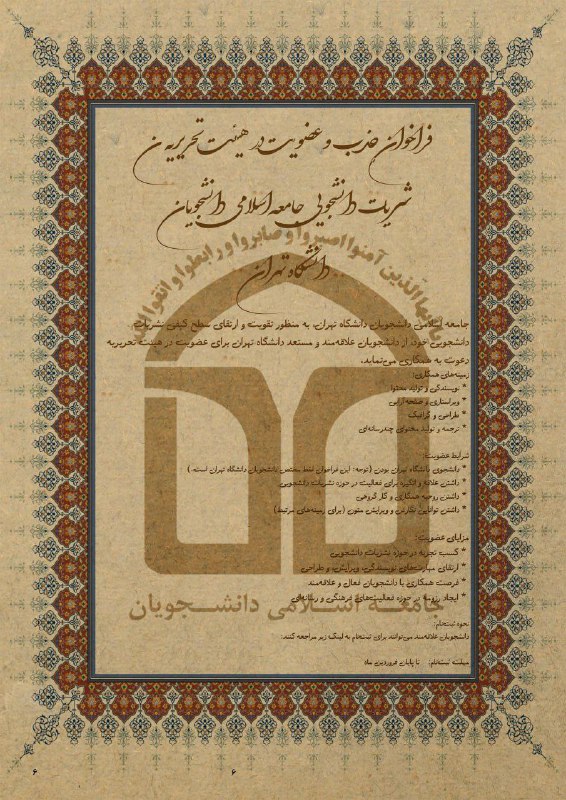 فراخوان جذب و عضویت در هیئت تحریریه ن
شریات دانشجویی جامعه اسلامی دانشجویان
دانشگاه تهران
یا ایها الذین آمنوا اصبروا و صابروا و رابطوا و اتقوا الله
جامعه اسلامی دانشجویان دانشگاه تهران، به منظور تقویت و ارتقای سطح کیفی نشریات
دانشجویی خود، از دانشجویان علاقه‌مند و مستعد دانشگاه تهران برای عضویت در هیئت تحریریه
دعوت به همکاری می‌نماید.
زمینه‌های همکاری:
* نویسندگی و تولید محتوا
* ویراستاری و صفحه‌آرایی
* طراحی و گرافیک
* ترجمه و تولید محتوای چندرسانه‌ای
شرایط عضویت:
* دانشجوی دانشگاه تهران بودن (توجه: این فراخوان فقط مختص دانشجویان دانشگاه تهران است.)
* داشتن علاقه و انگیزه برای فعالیت در حوزه نشریات دانشجویی
* داشتن روحیه همکاری و کار گروهی
* داشتن توانایی نگارش و ویرایش متون (برای زمینه‌های مرتبط)
مزایای عضویت:
* کسب تجربه در حوزه نشریات دانشجویی
* ارتقای مهارت‌های نویسندگی، ویرایش، و طراحی
* فرصت همکاری با دانشجویان فعال و علاقه‌مند
* ایجاد رزومه در حوزه فعالیت‌های فرهنگی و رسانه‌ای
جامعه اسلامی دانشجویان
نحوه ثبت‌نام:
دانشجویان علاقه‌مند می‌توانند برای ثبت‌نام به لینک زیر مراجعه کنند:
مهلت ثبت‌نام: تا پایان فروردین ماه
۶ ۶